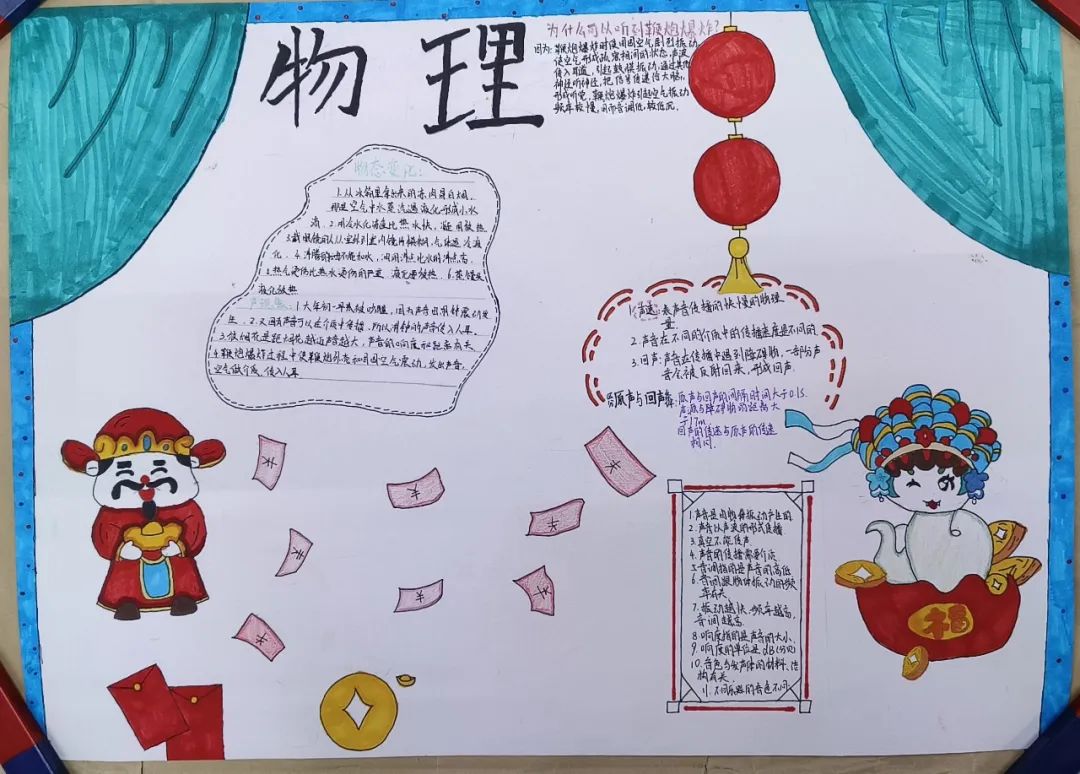 物理
为什么可以听到鞭炮爆炸?
因为:鞭炮爆炸时使周围空气剧烈振动
使空气形成疏密相间的状态,声波
传入耳道,引起鼓膜振动,通过其他
神经听神经,把信号传递给大脑,
形成听觉,鞭炮爆炸引起空气振动
频率较慢,因而音调低,较低沉.
物态变化:
1.从冰箱里拿出来的冻肉冒白烟,
那是空气中水蒸汽遇液化形成小水
滴.2.用冷水化冻比热水快,凝固放热
3.戴眼镜的人从室外到室内镜片模糊,气体遇冷液
化.4.沸腾的油不能加水,因油沸点比水的沸点高.
5.热气烫伤比热水烫伤的严重,液化要放热.6.蒸馒头
液化放热
声现象:1.大年初一早被钟吵醒,因为声音由钟振动发
生.2.又因声音可以在介质中传播,所以闹钟的声音传入人耳.
3.放烟花是距烟花越近声越大,声音的响度和距离有关
4.鞭炮爆炸过程中使鞭炮外壳和周围空气震动,发出声音,
空气做介质,传入人耳
1.声速:表声音传播的快慢的物理
量.
2.声音在不同的介质中的传播速度是不同的
3.回声:声音在传播中遇到障碍物,一部分声
音会被反射回来,形成回声.
原声与回声:原声与回声的间隔时间大于0.1S.
声源与障碍物的距离大
于17m
回声的传速与原声的传速
相同.
1.声音是由物体振动产生的
2.声音以声波的形式传播.
3.真空不能传声.
4.声音的传播需要介质.
5.音调指的是声音的高低
6.音调跟物体振动的频
率有关.
7.振动越快,频率越高,
音调越高.
8.响度指的是声音的大小.
9.响度的单位是dB(分贝)
10.音色与发声体的材料、结
构有关.
11.不同乐器的音色不同
福